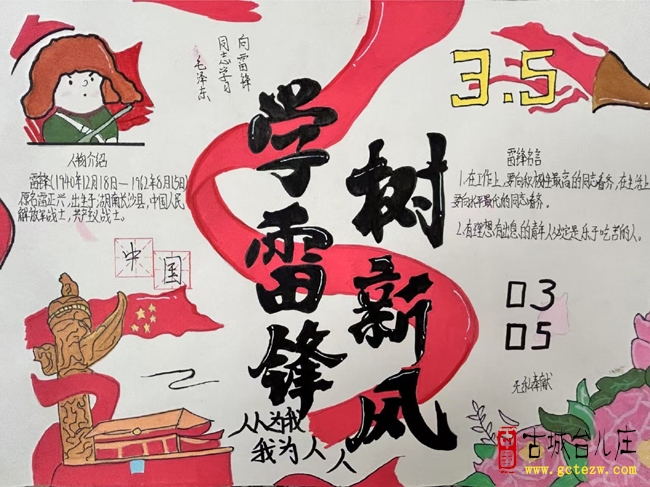 向雷锋
同志学习
毛泽东
3.5
学雷锋
树新风
人物介绍
雷锋(1940年12月18日—1962年8月15日)
原名雷正兴,出生于湖南长沙县,中国人民
解放军战士,共产主义战士。
雷锋名言
1.在工作上,要向积极性最高的同志看齐,在生活上
要向水平最低的同志看齐。
2.有理想有出息的青年人必定是乐于吃苦的人。
中国
03
05
无私奉献
人人为我
我为人人
中国
古城台儿庄
www.gctezw.com